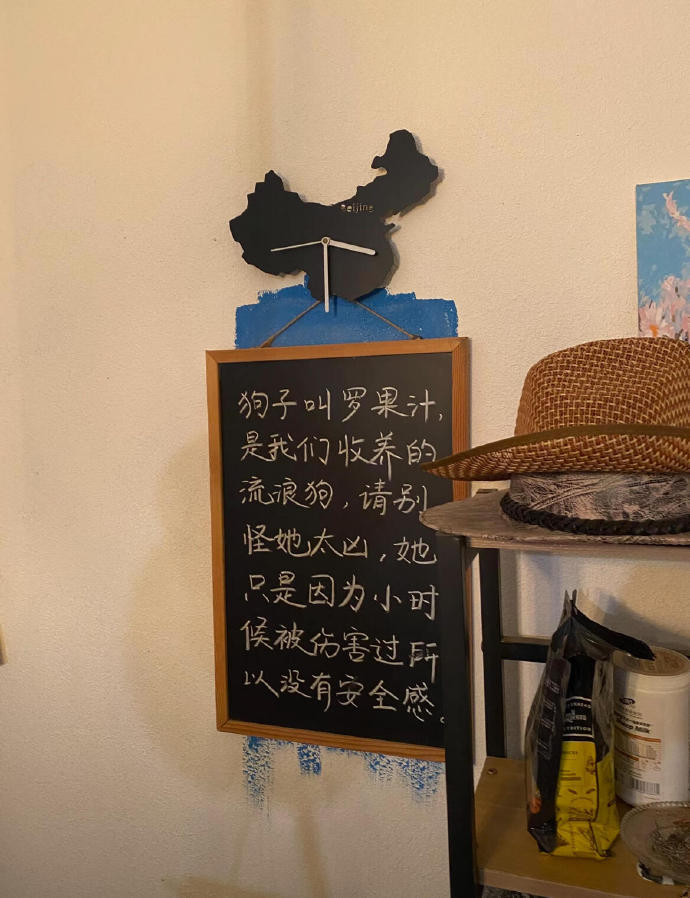 Beijing
狗子叫罗果汁,
是我们收养的
流浪狗,请别
怪她太凶,她
只是因为小时
候被伤害过所
以没有安全感。